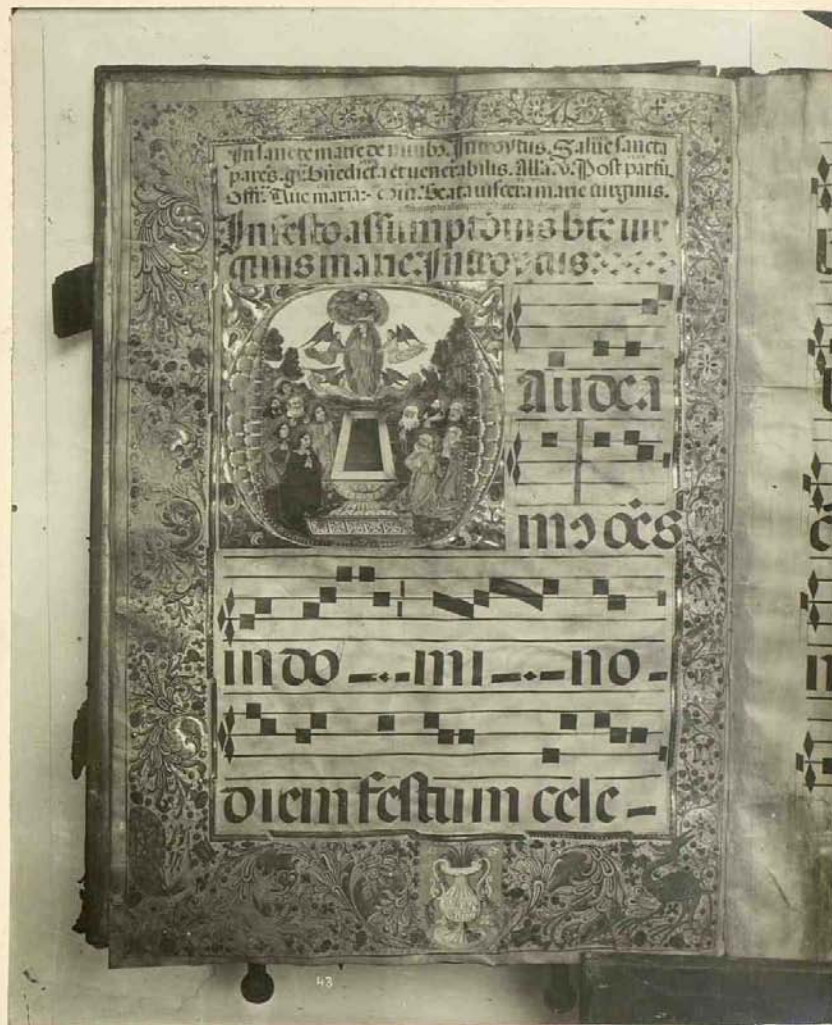 In sancte marie de nivib9. Introytus. Salue sancta
pares. gr. Bñedicta et venerabilis. Alła. v. Post partũ
Offr. Aue maria:- Coĩa. Beata viscera marie virginis.
In festo assumptõnis btẽ vir
ginis marie. Introytus:
Audea
m9 oẽs
in do mi no
diem festum cele
43